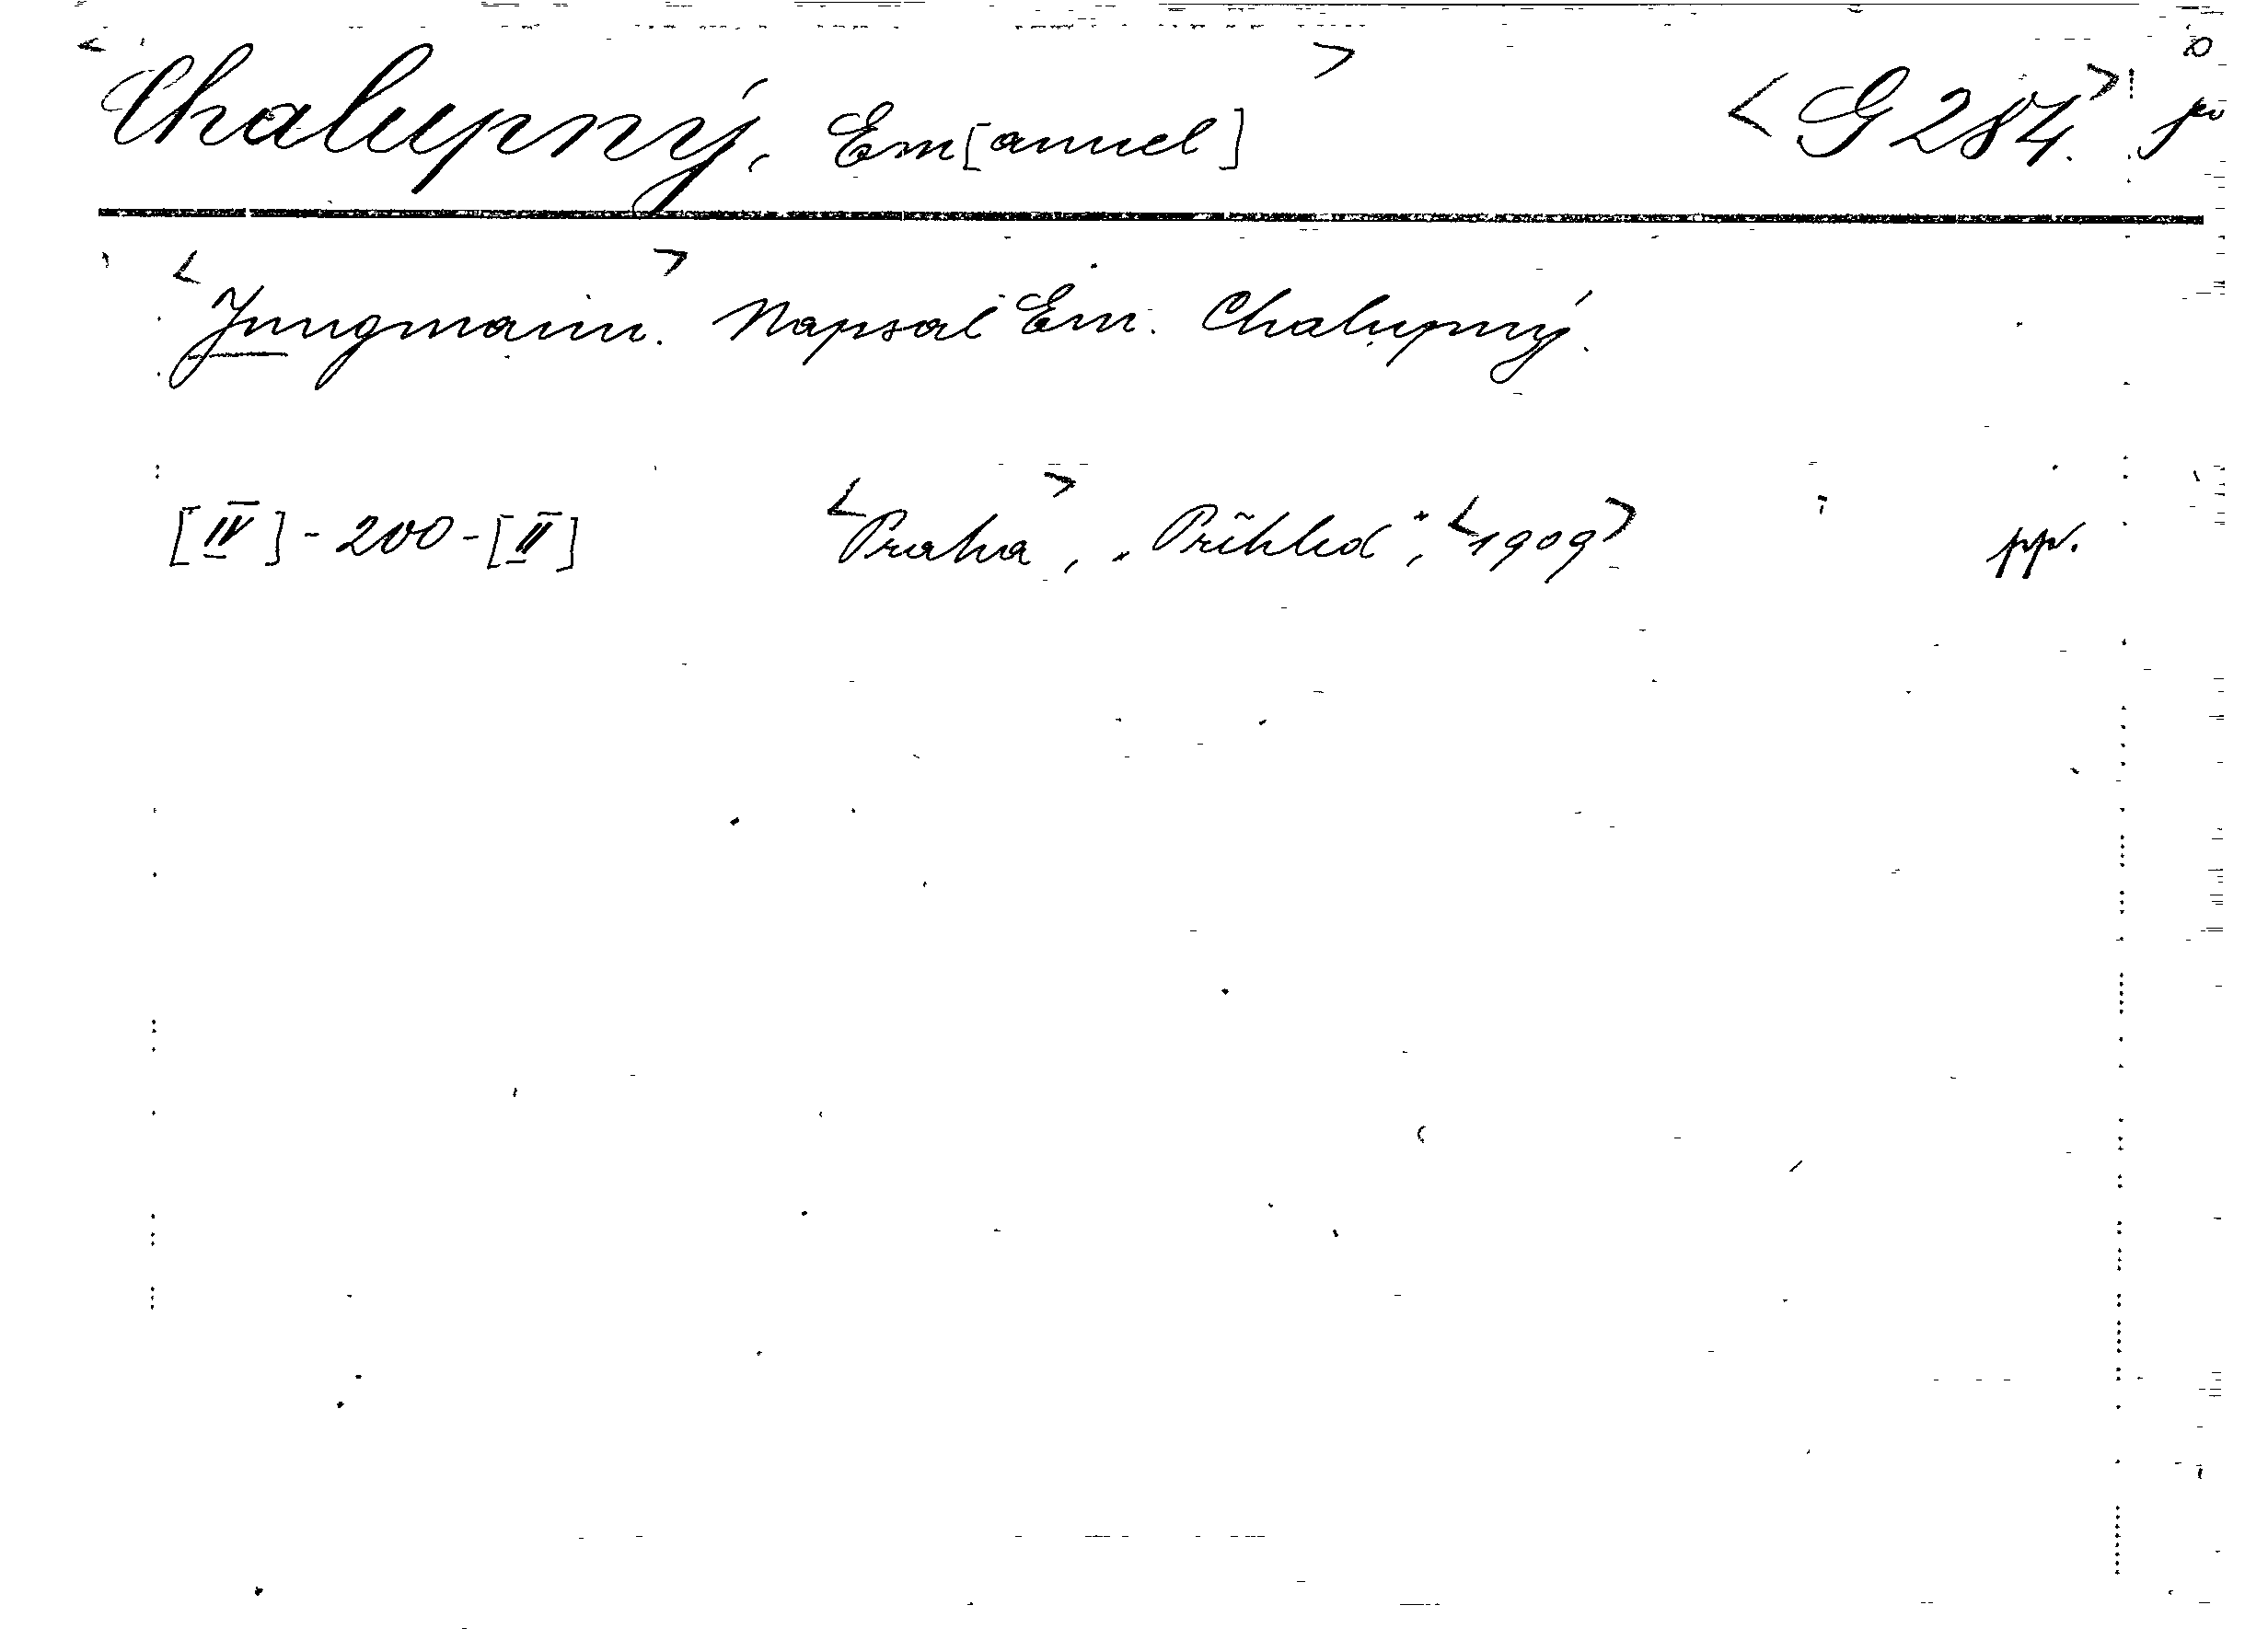 <Chalupný, Em[anuel]> <G 284.>
<Jungmann.> Napsal Em. Chalupný.
[IV] - 200 - [II] <Praha>, „Přehled“, <1909> pp.